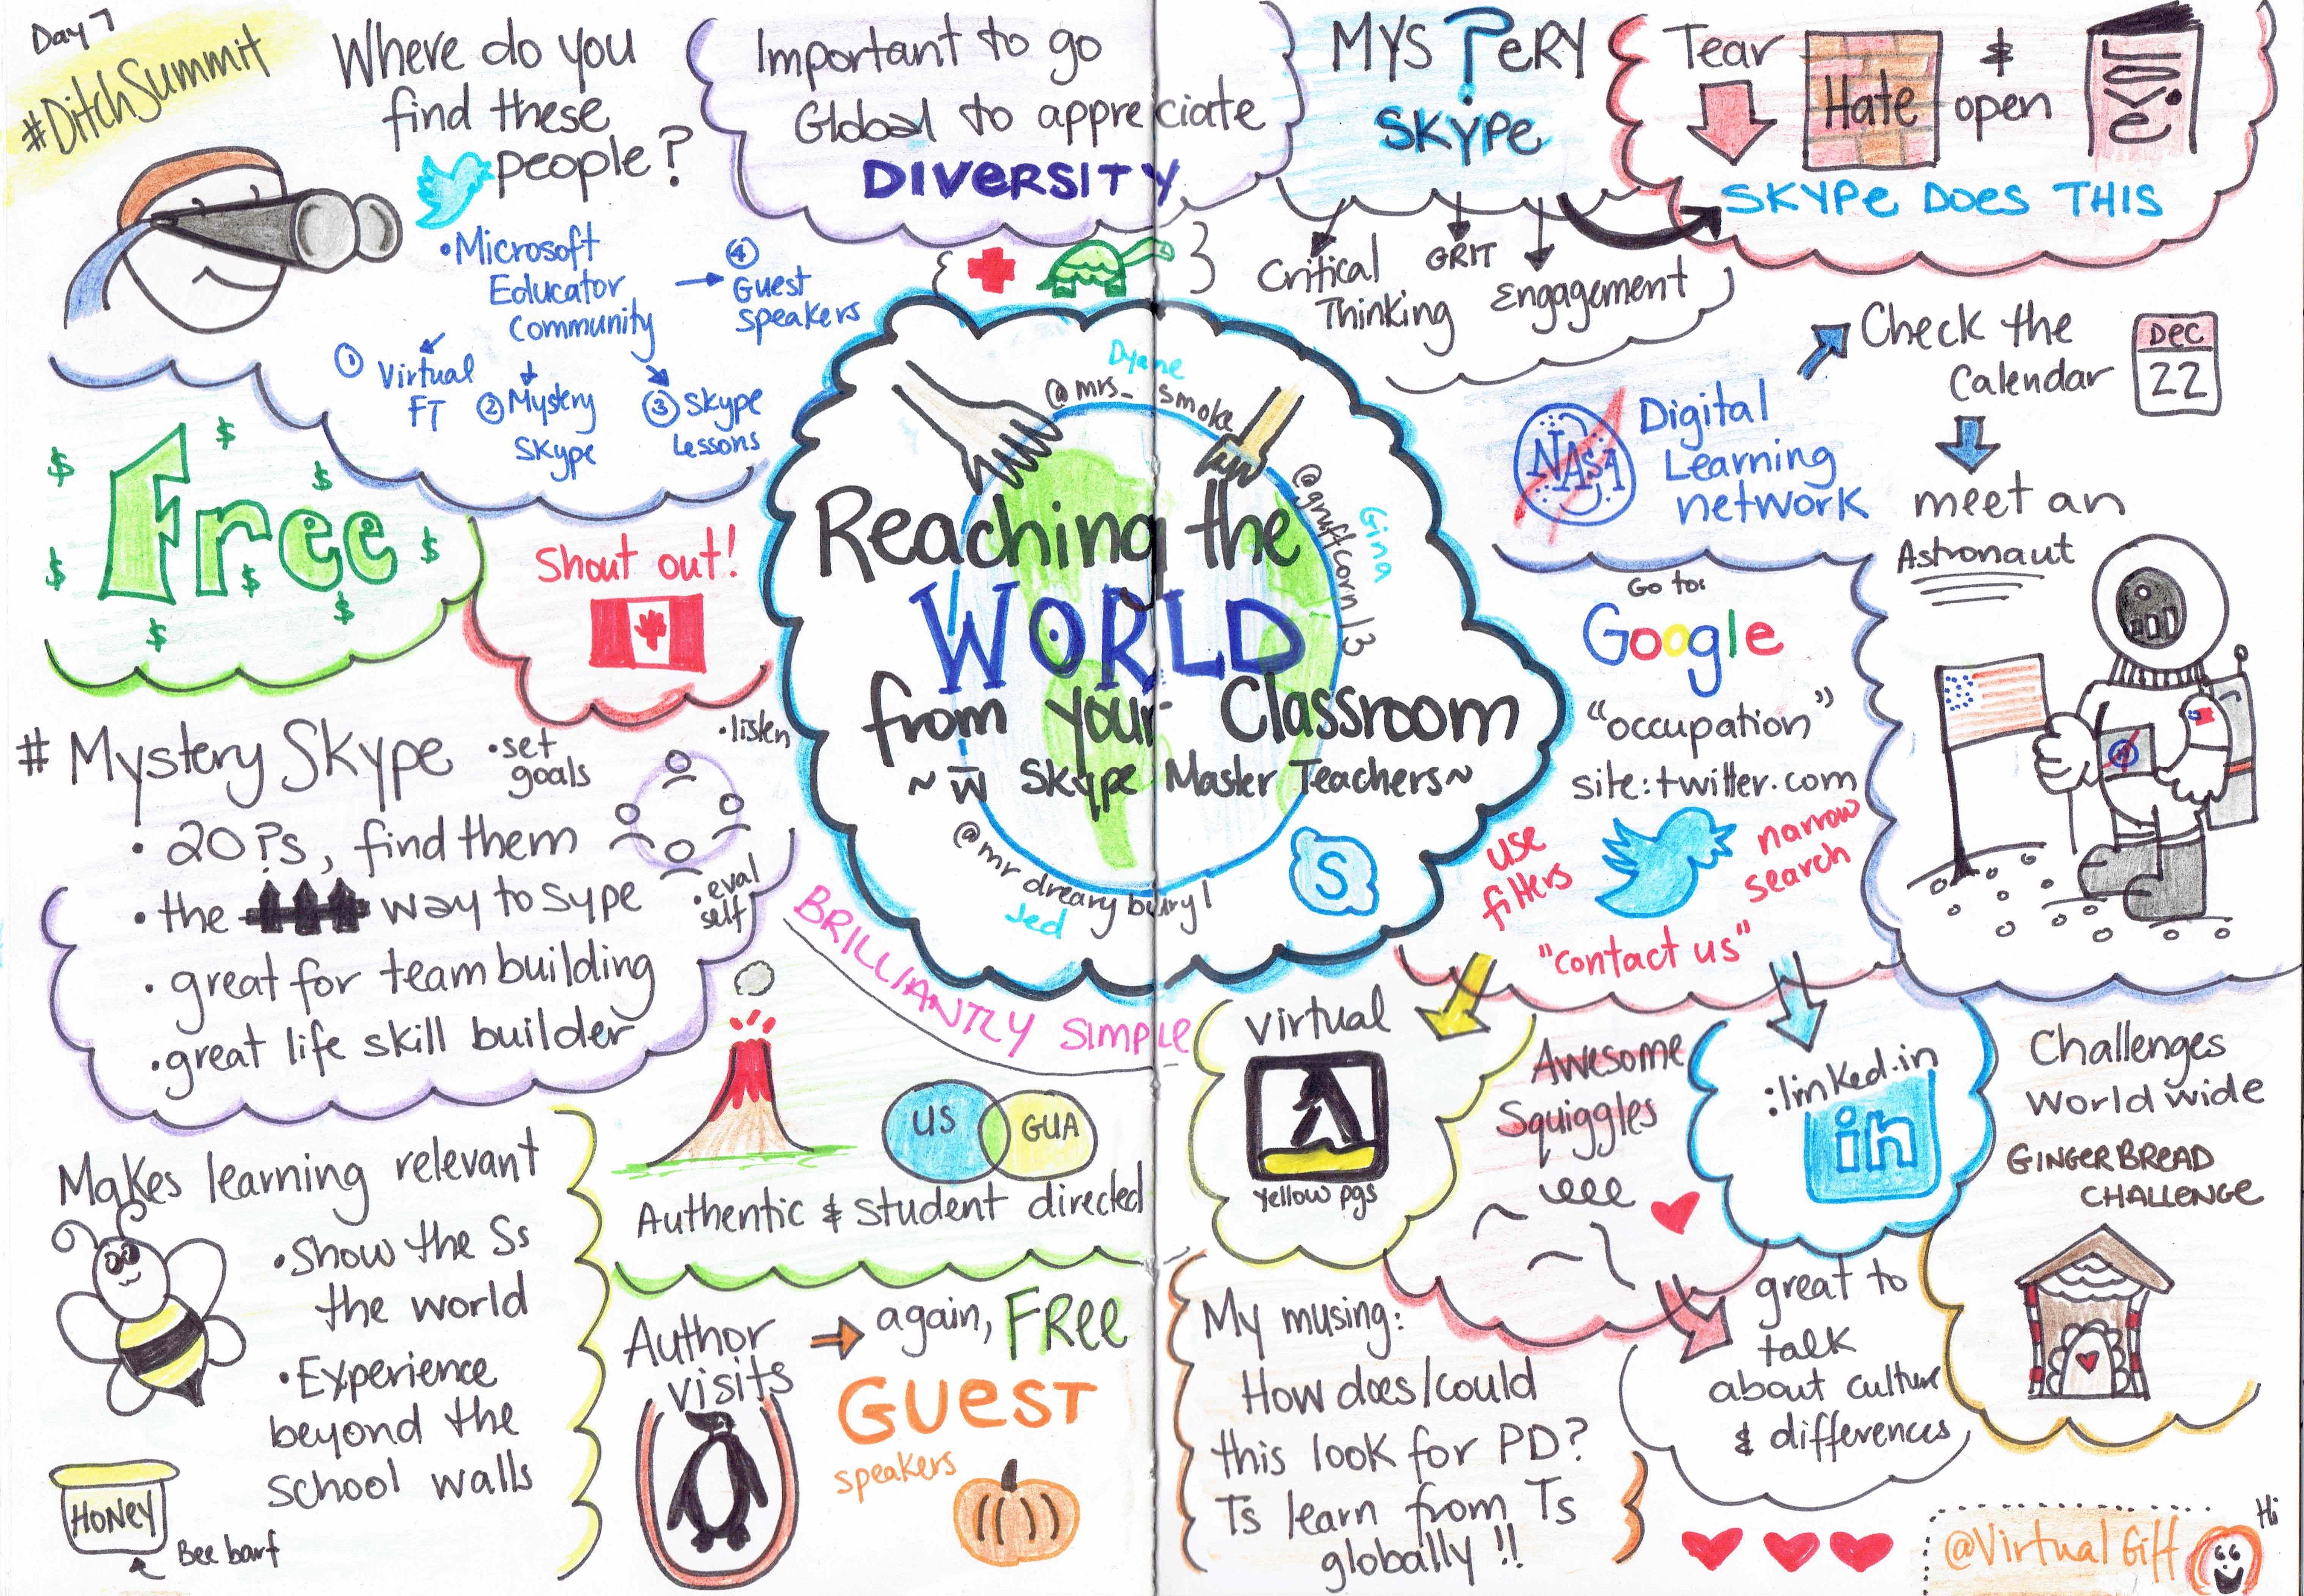 Day 7
#DitchSummit
Where do you
find these
people?
• Microsoft
Educator
Community
① Virtual
FT
② Mystery
Skype
③ Skype
Lessons
④
Guest
speakers
Important to go
Global to appreciate
DIVERSITY
MYS?ERY
SKYPE
Critical
Thinking
GRIT
Engagement
Tear
Hate
&
open
love
SKYPE DOES THIS
Free
$ $ $ $ $ $ $ $
Shout out!
Dyane
@mrs_smoke
Gina
@gruffcorn13
Reaching the
WORLD
from your Classroom
~ w̄ Skype Master Teachers ~
@mrdrearybury1
Jed
S
BRILLIANTLY SIMPLE
NASA
Digital
Learning
network
Check the
Calendar
DEC
22
meet an
Astronaut
Go to:
Google
"occupation"
site:twitter.com
use
filters
narrow
search
"contact us"
# Mystery Skype
• set
goals
• listen
• eval
self
• 20 ?s, find them
• the way to sype
• great for team building
• great life skill builder
US
GUA
Authentic & student directed
Makes learning relevant
• Show the Ss
the world
• Experience
beyond the
school walls
HONEY
Bee barf
Author
visits
again, FREE
GUEST
speakers
Virtual
Yellow pgs
Awesome
Squiggles
:linked.in
in
Challenges
World wide
GINGERBREAD
CHALLENGE
My musing:
How does/could
this look for PD?
Ts learn from Ts
globally !!
great to
talk
about culture
& differences
@VirtualGiff
Hi